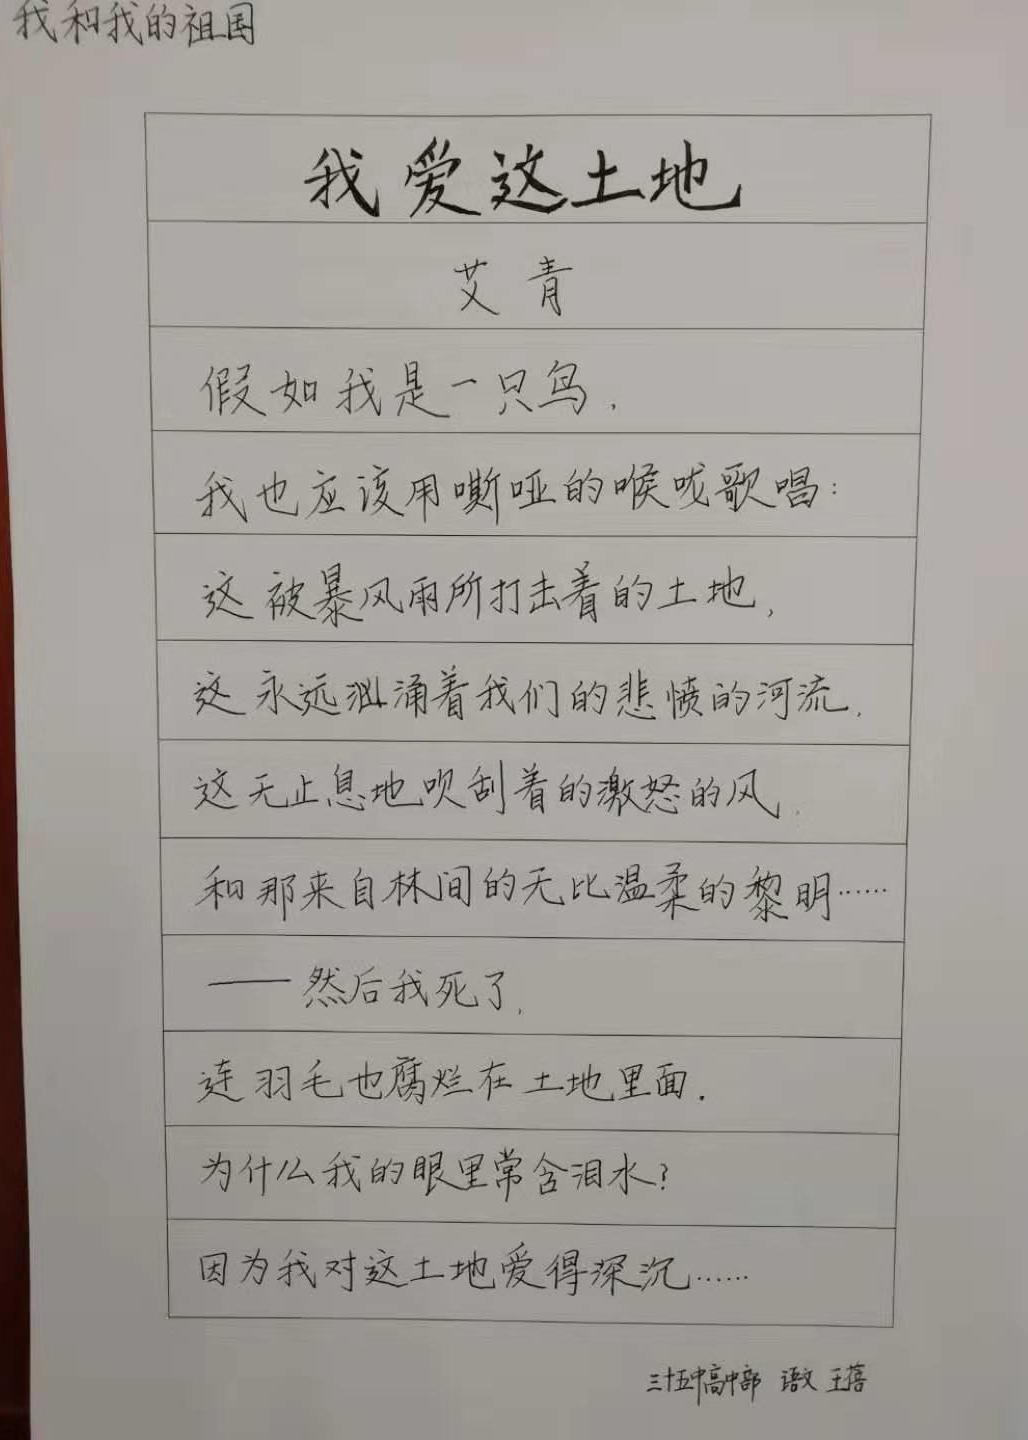 我和我的祖国
我爱这土地
艾青
假如我是一只鸟,
我也应该用嘶哑的喉咙歌唱:
这被暴风雨所打击着的土地,
这永远汹涌着我们的悲愤的河流,
这无止息地吹刮着的激怒的风,
和那来自林间的无比温柔的黎明……
——然后我死了,
连羽毛也腐烂在土地里面.
为什么我的眼里常含泪水?
因为我对这土地爱得深沉……
三十五中高中部 语文 王蓓